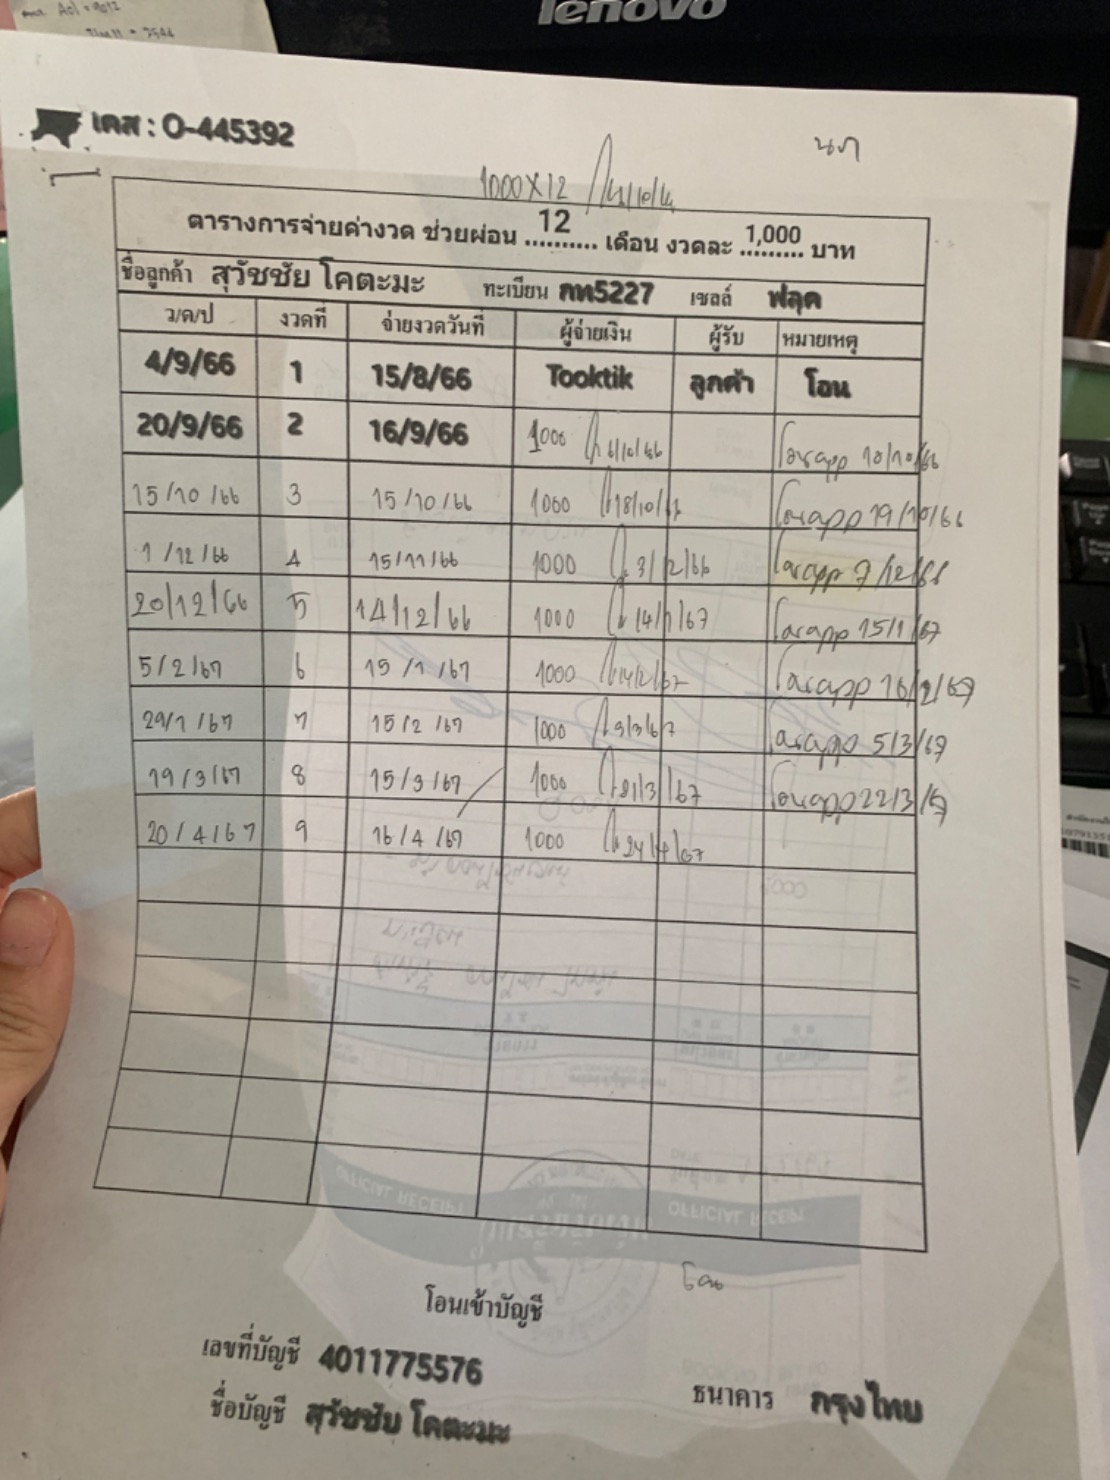 lenovo
เคส : O-445392
1000X12
ตารางการจ่ายค่างวด ช่วยผ่อน 12 เดือน งวดละ 1,000 บาท
ชื่อลูกค้า สุวัชชัย โคตะมะ ทะเบียน กท5227 เซลล์ ฟลุค
ว/ด/ป งวดที่ จ่ายงวดวันที่ ผู้จ่ายเงิน ผู้รับ หมายเหตุ
4/9/66 1 15/8/66 Tooktik ลูกค้า โอน
20/9/66 2 16/9/66 1000 6/10/66 โอนapp 10/10/66
15/10/66 3 15/10/66 1000 18/10/67 โอนapp 19/10/66
1/12/66 4 15/11/66 1000 3/12/66 โอนapp 7/12/66
20/12/66 5 14/12/66 1000 14/1/67 โอนapp 15/1/67
5/2/67 6 15/1/67 1000 14/2/67 โอนapp 16/2/67
29/1/67 7 15/2/67 1000 3/3/67 โอนapp 5/3/67
19/3/67 8 15/3/67 1000 21/3/67 โอนapp 22/3/67
20/4/67 9 16/4/67 1000 24/4/67
โอน
โอนเข้าบัญชี
เลขที่บัญชี 4011775576
ธนาคาร กรุงไทย
ชื่อบัญชี สุวัชชัย โคตะมะ